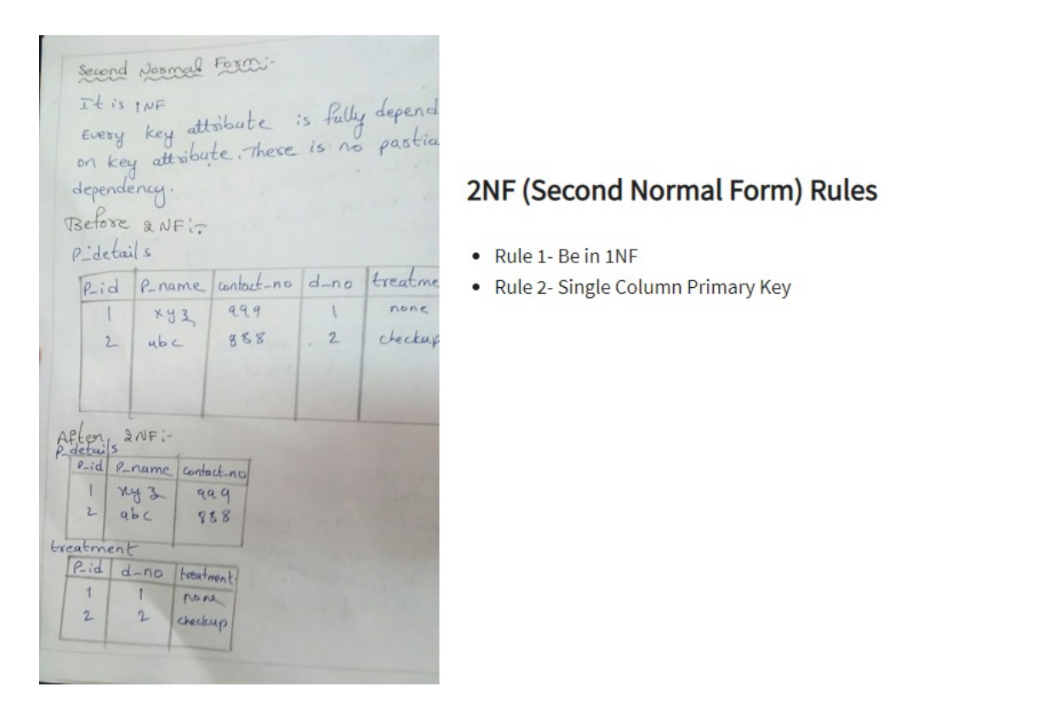 Second Normal Form:-
It is 1NF
Every key attribute is fully depend
on key attribute. There is no partia
dependency.
Before 2NF:-
P_details
P_id P_name contact_no d_no treatme
1 xyz 999 1 none
2 abc 888 2 checkup
After 2NF:-
P_details
P_id P_name contact_no
1 xyz 999
2 abc 888
treatment
P_id d_no treatment
1 1 none
2 2 checkup
2NF (Second Normal Form) Rules
• Rule 1- Be in 1NF
• Rule 2- Single Column Primary Key